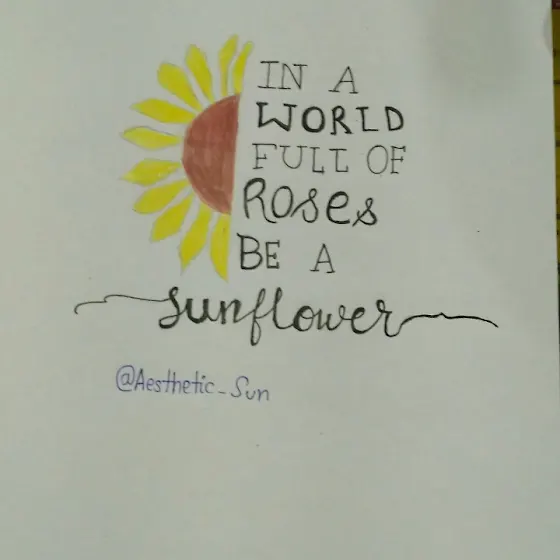 IN A
WORLD
FULL OF
Roses
BE A
sunflower
@Aesthetic_Sun